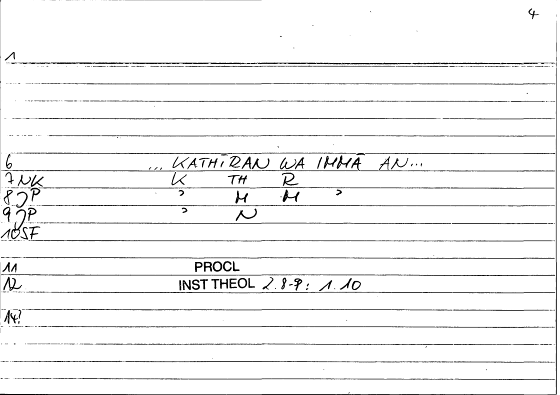 4
1
6 ... KATHĪRAN WA IMMĀ AN...
7 NK K TH R
8 JP ʾ M M ʾ
9 JP ʾ N
10 SF
11 PROCL
12 INST THEOL 2.8-9: 1.10
14?